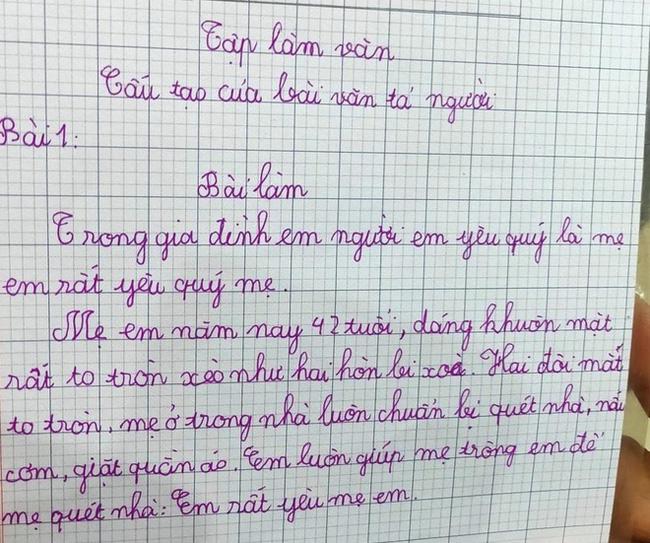 Tập làm văn
Cấu tạo của bài văn tả người
Bài 1:
Bài làm
Trong gia đình em người em yêu quý là mẹ
em rất yêu quý mẹ.
Mẹ em năm nay 42 tuổi, dáng khuôn mặt
rất to tròn xèo như hai hòn bi xoè. Hai đôi mắt
to tròn, mẹ ở trong nhà luôn chuẩn bị quét nhà, nấu
cơm, giặt quần áo. Em luôn giúp mẹ trông em để
mẹ quét nhà. Em rất yêu mẹ em.